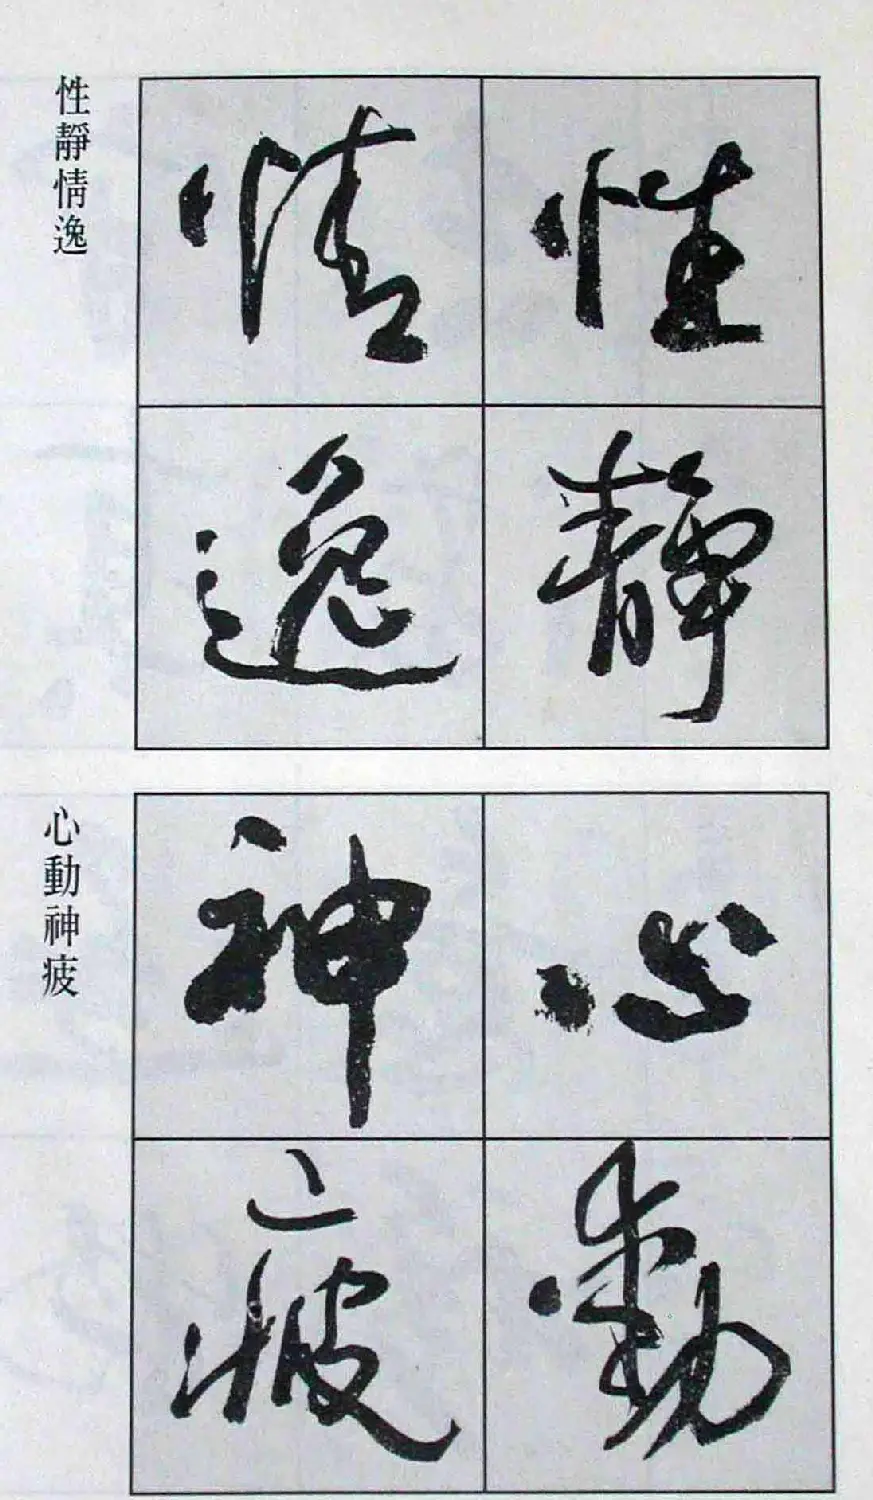 性靜情逸
性靜
情逸
心動神疲
心動
神疲